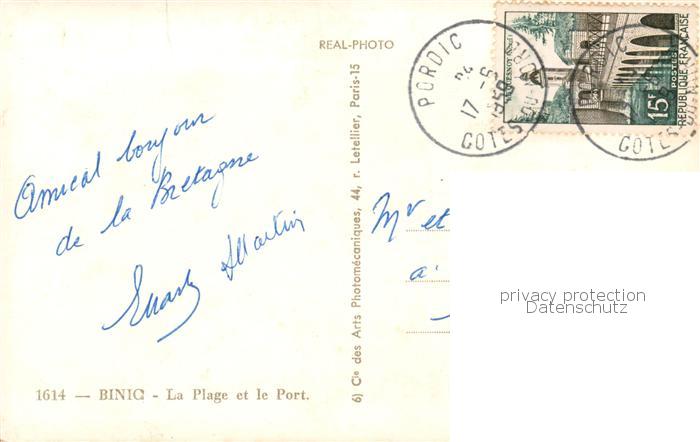 REAL-PHOTO
PORDIC
17
1958
COTES-DU-NORD
LE QUESNOY
15F
POSTES
REPUBLIQUE FRANÇAISE
COTES-DU-NORD
Amical bonjour
de la Bretagne
Martin
Mr et
a
privacy protection
Datenschutz
6) Cie des Arts Photomécaniques, 44, r. Letellier, Paris-15
1614 — BINIC - La Plage et le Port.